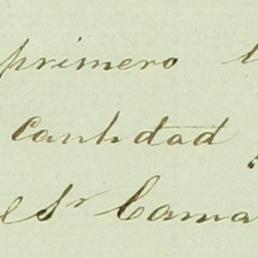 primero
Cantidad
el Sr Cama